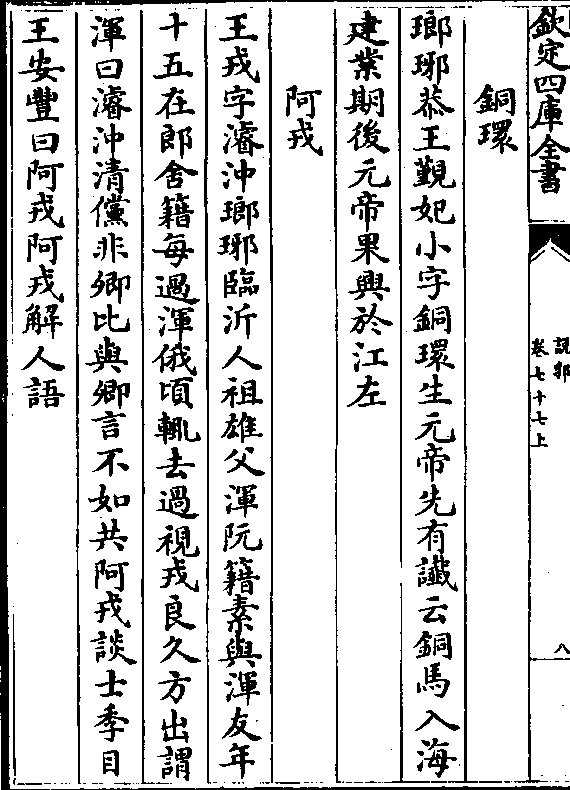 欽定四庫全書
說郛
卷七十七上
八
銅環
瑯琊恭王覲妃小字銅環生元帝先有讖云銅馬入海
建業期後元帝果興於江左
阿戎
王戎字濬沖瑯琊臨沂人祖雄父渾阮籍素與渾友年
十五在郎舍籍每過渾俄頃輒去過視戎良久方出謂
渾曰濬沖清儻非卿比與卿言不如共阿戎談士季目
王安豐曰阿戎阿戎解人語